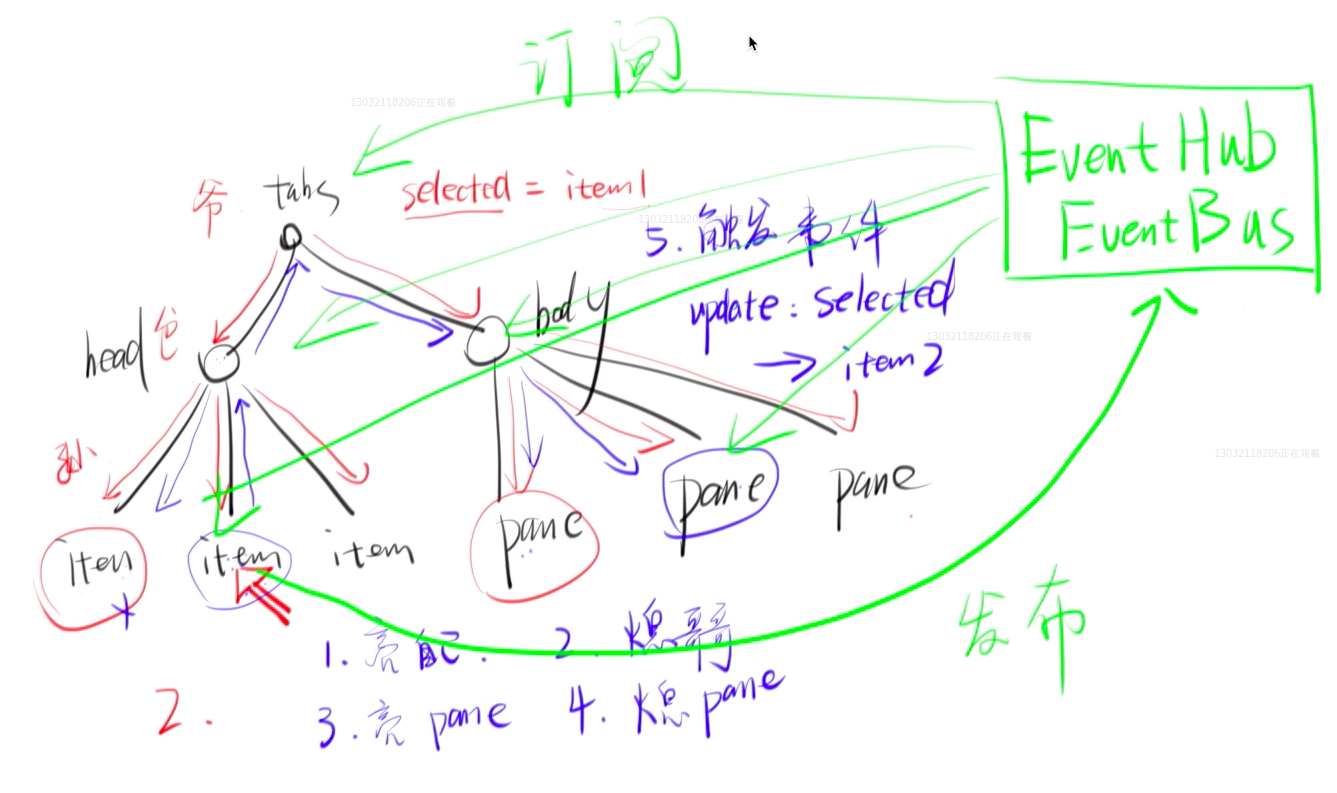 订阅
13032118206正在观看
Event Hub
EventBus
爷 tabs
selected = item1
1303211820
5. 触发事件
head 爸
body
update: selected
13032118206正在观看
→ item2
孙
13032118206正在观看
item
item
item
pane
pane
pane
发布
1. 亮自己. 2. 熄哥哥
2.
3. 亮 pane 4. 熄 pane